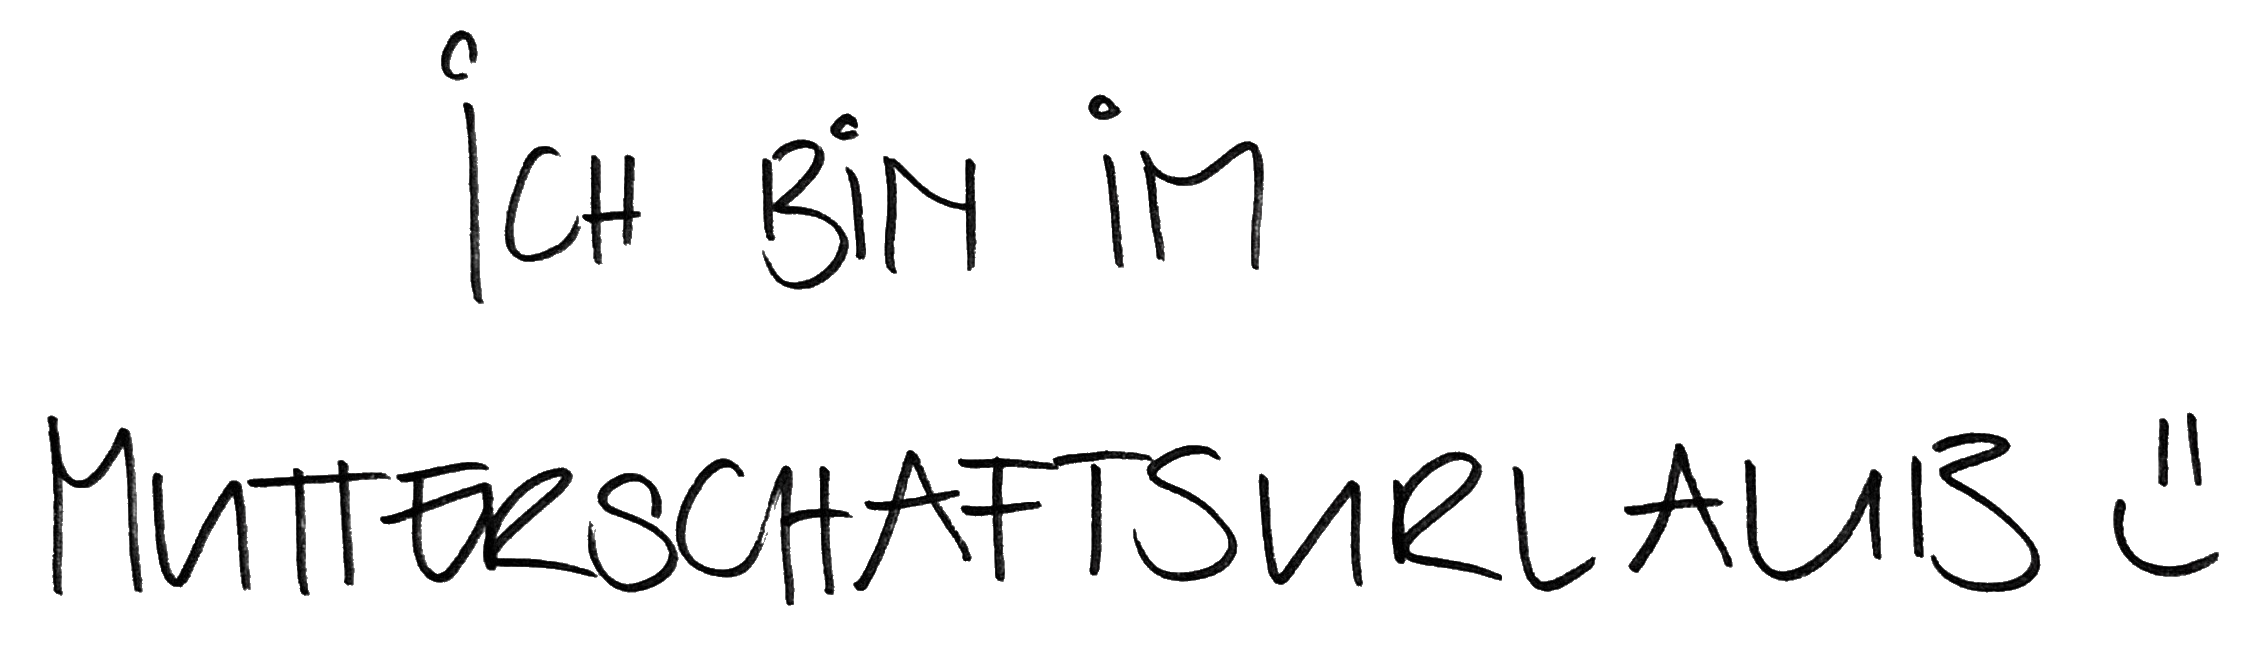 ICH BIN IM
MUTTERSCHAFTSURLAUB :)